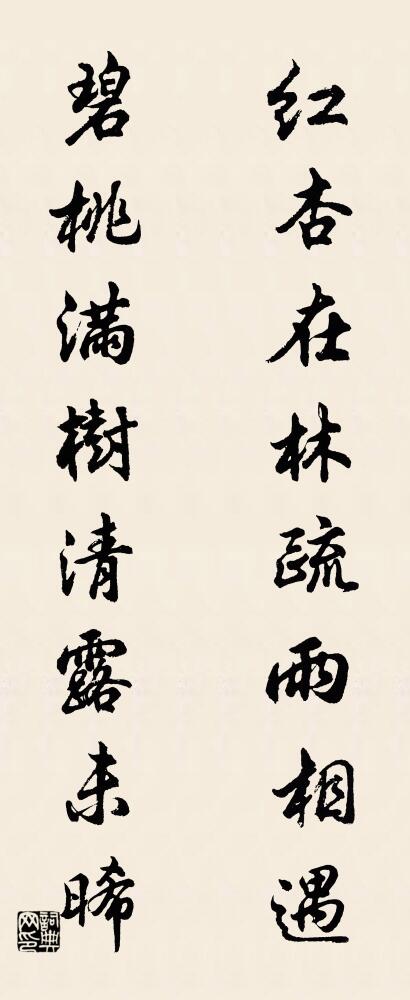 红杏在林疏雨相遇
碧桃滿樹清露未晞
詞典網印